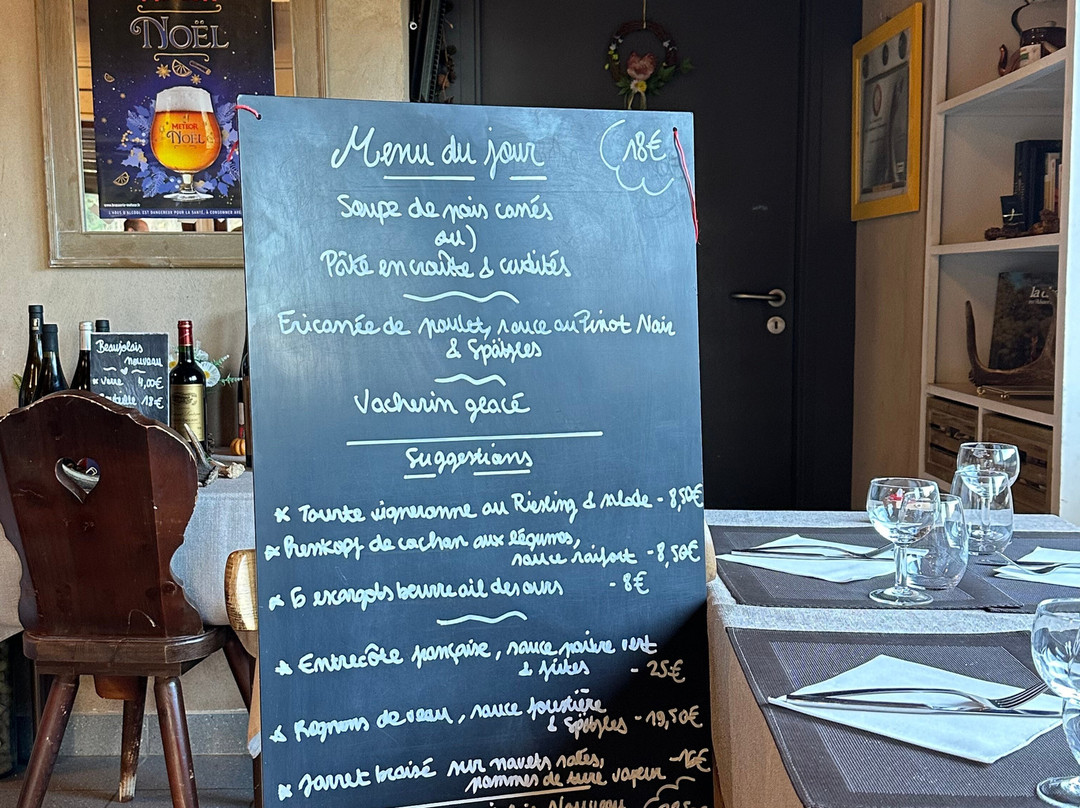 NOËL
METEOR
NOËL
L'ABUS D'ALCOOL EST DANGEREUX POUR LA SANTÉ, À CONSOMMER AVEC
Menu du jour 18€
Soupe de pois cassés
ou)
Pâté en croûte & crudités
Fricassée de poulet, sauce au Pinot Noir
& Spätzles
Vacherin glacé
Suggestions
* Tourte vigneronne au Riesling & salade - 8,50€
* Presskopf de cochon aux légumes,
sauce raifort - 8,50€
* 6 escargots beurre ail des ours - 8€
* Entrecôte française, sauce poivre vert
& frites - 25€
* Rognons de veau, sauce forestière
& Spätzles - 19,50€
* Jarret braisé sur navets salés,
pommes de terre vapeur - 16€
Nouveau
Beaujolais
nouveau
* verre 4,00€
bouteille 18€